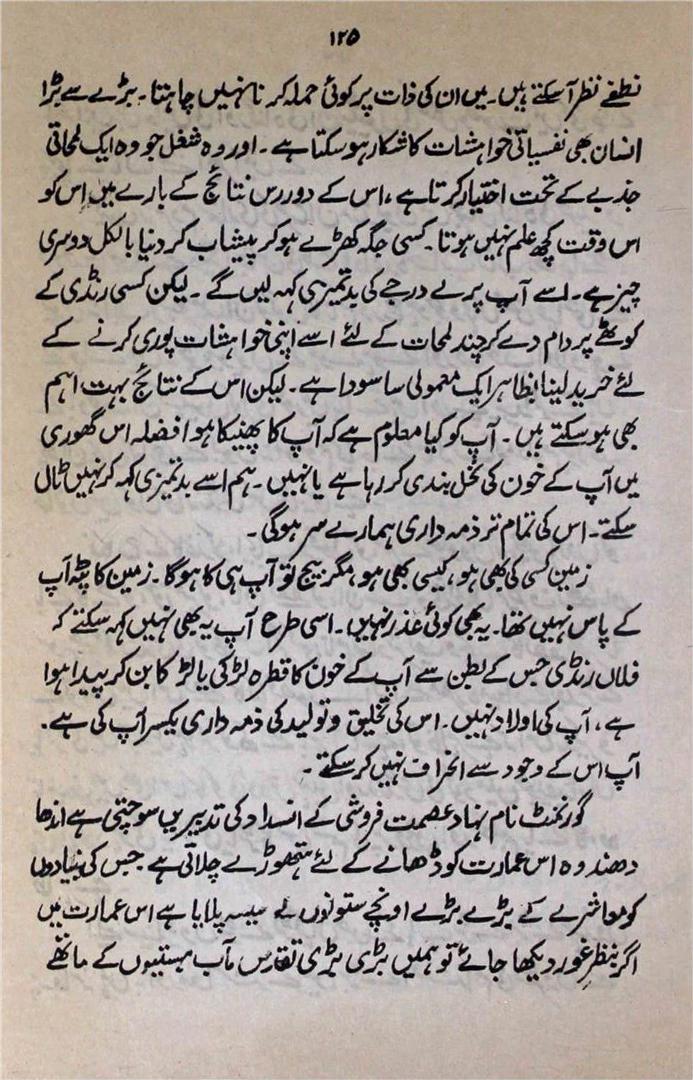 ۱۲۵
نطفے نظر آ سکتے ہیں۔ میں ان کی ذات پر کوئی حملہ کرنا نہیں چاہتا۔ بڑے سے بڑا
انسان بھی نفسیاتی خواہشات کا شکار ہو سکتا ہے۔ اور وہ شغل جو وہ ایک لمحاتی
جذبے کے تحت اختیار کرتا ہے، اس کے دوررس نتائج کے بارے میں اس کو
اس وقت کچھ علم نہیں ہوتا۔ کسی جگہ کھڑے ہو کر پیشاب کر دنیا بالکل دوسری
چیز ہے۔ اسے آپ پرلے درجے کی بدتمیزی کہہ لیں گے۔ لیکن کسی رنڈی کے
کوٹھے پر دام دے کر چند لمحات کے لئے اسے اپنی خواہشات پوری کرنے کے
لئے خرید لینا بظاہر ایک معمولی سا سودا ہے۔ لیکن اس کے نتائج بہت اہم
بھی ہو سکتے ہیں۔ آپ کو کیا معلوم ہے کہ آپ کا پھینکا ہوا فضلہ اس گھوری
میں آپ کے خون کی نخل بندی کر رہا ہے یا نہیں۔ ہم اسے بدتمیزی کہہ کر نہیں ٹال
سکتے۔ اس کی تمام تر ذمہ داری ہمارے سر ہوگی۔
زمین کسی کی بھی ہو، کیسی بھی ہو، مگر بیج تو آپ ہی کا ہوگا۔ زمین کا پٹہ آپ
کے پاس نہیں تھا۔ یہ بھی کوئی عذر نہیں۔ اسی طرح آپ یہ بھی نہیں کہہ سکتے کہ
فلاں رنڈی جس کے بطن سے آپ کے خون کا قطرہ لڑکی یا لڑکا بن کر پیدا ہوا
ہے، آپ کی اولاد نہیں۔ اس کی تخلیق و تولید کی ذمہ داری یکسر آپ کی ہے۔
آپ اس کے وجود سے انحراف نہیں کر سکتے۔
گورنمنٹ نام نہاد عصمت فروشی کے انسداد کی تدبیریں سوچتی ہے اندھا
دھند وہ اس عمارت کو ڈھانے کے لئے ہتھوڑے چلاتی ہے جس کی بنیادوں
کو معاشرے کے بڑے بڑے اونچے ستونوں نے سیسہ پلایا ہے اس عمارت میں
اگر بنظرِ غور دیکھا جائے تو ہمیں بڑی بڑی تقدس مآب ہستیوں کے ماتھے